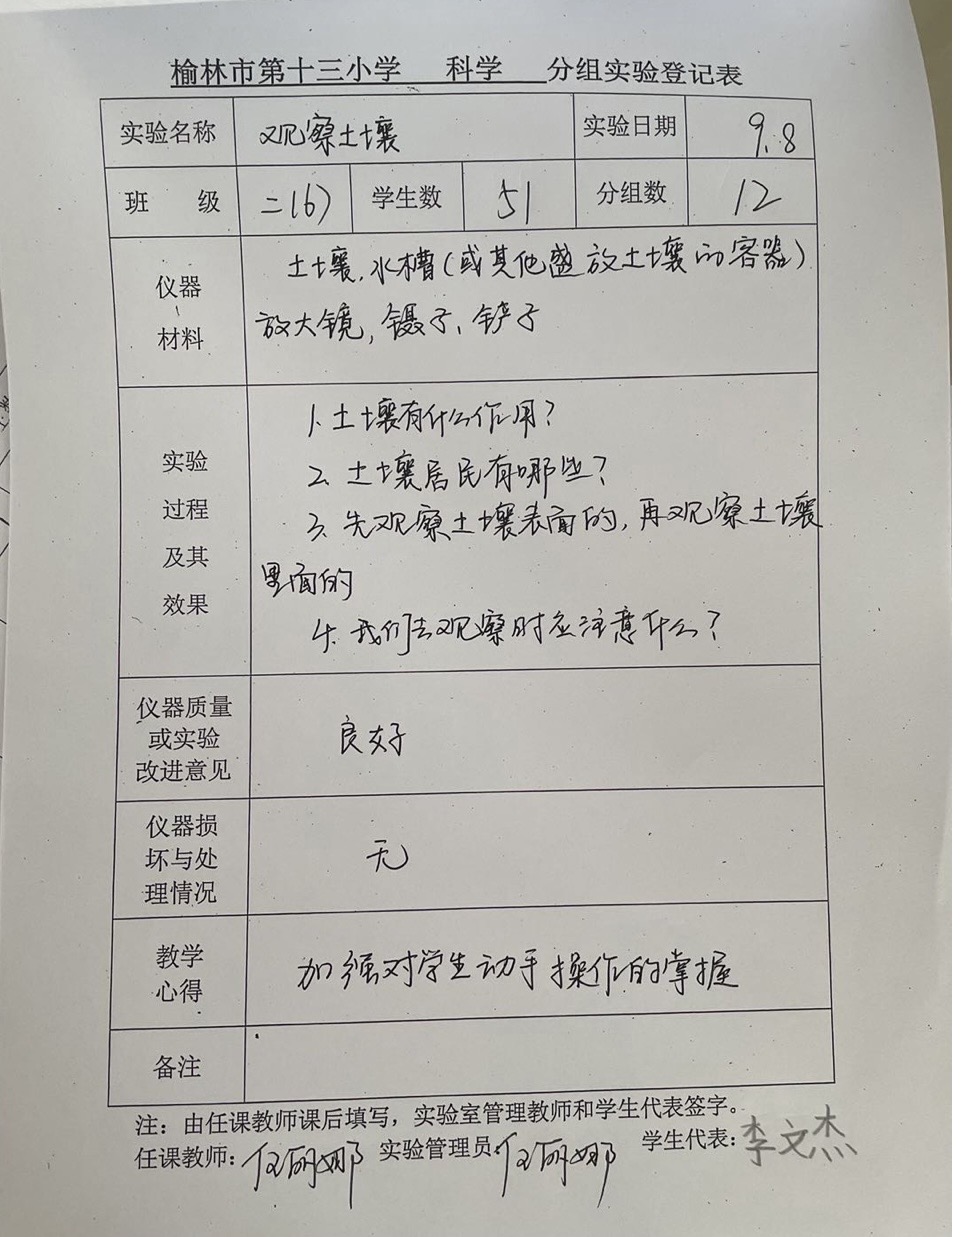 榆林市第十三小学 科学 分组实验登记表
实验名称 观察土壤 实验日期 9.8
班 级 二(6) 学生数 51 分组数 12
仪器、材料
土壤,水槽(或其他盛放土壤的容器)
放大镜,镊子、铲子
实验过程及其效果
1.土壤有什么作用?
2、土壤居民有哪些?
3、先观察土壤表面的,再观察土壤
里面的
4.我们去观察时应注意什么?
仪器质量
或实验
改进意见
良好
仪器损
坏与处
理情况
无
教学
心得
加强对学生动手操作的掌握
备注
注:由任课教师课后填写,实验室管理教师和学生代表签字。
任课教师:任丽娜 实验管理员:任丽娜 学生代表:李文杰